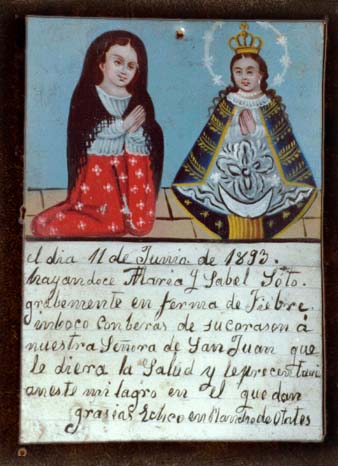 el dia 11 de Junio de 1893.
hayandoce Maria Ysabel Soto.
grabemente en ferma de Fiebre.
inboco con beras de su corason á
nuestra Señora de San Juan que
le diera la Salud y le precentan
aneste milagro en el que dan
grasias Echo en